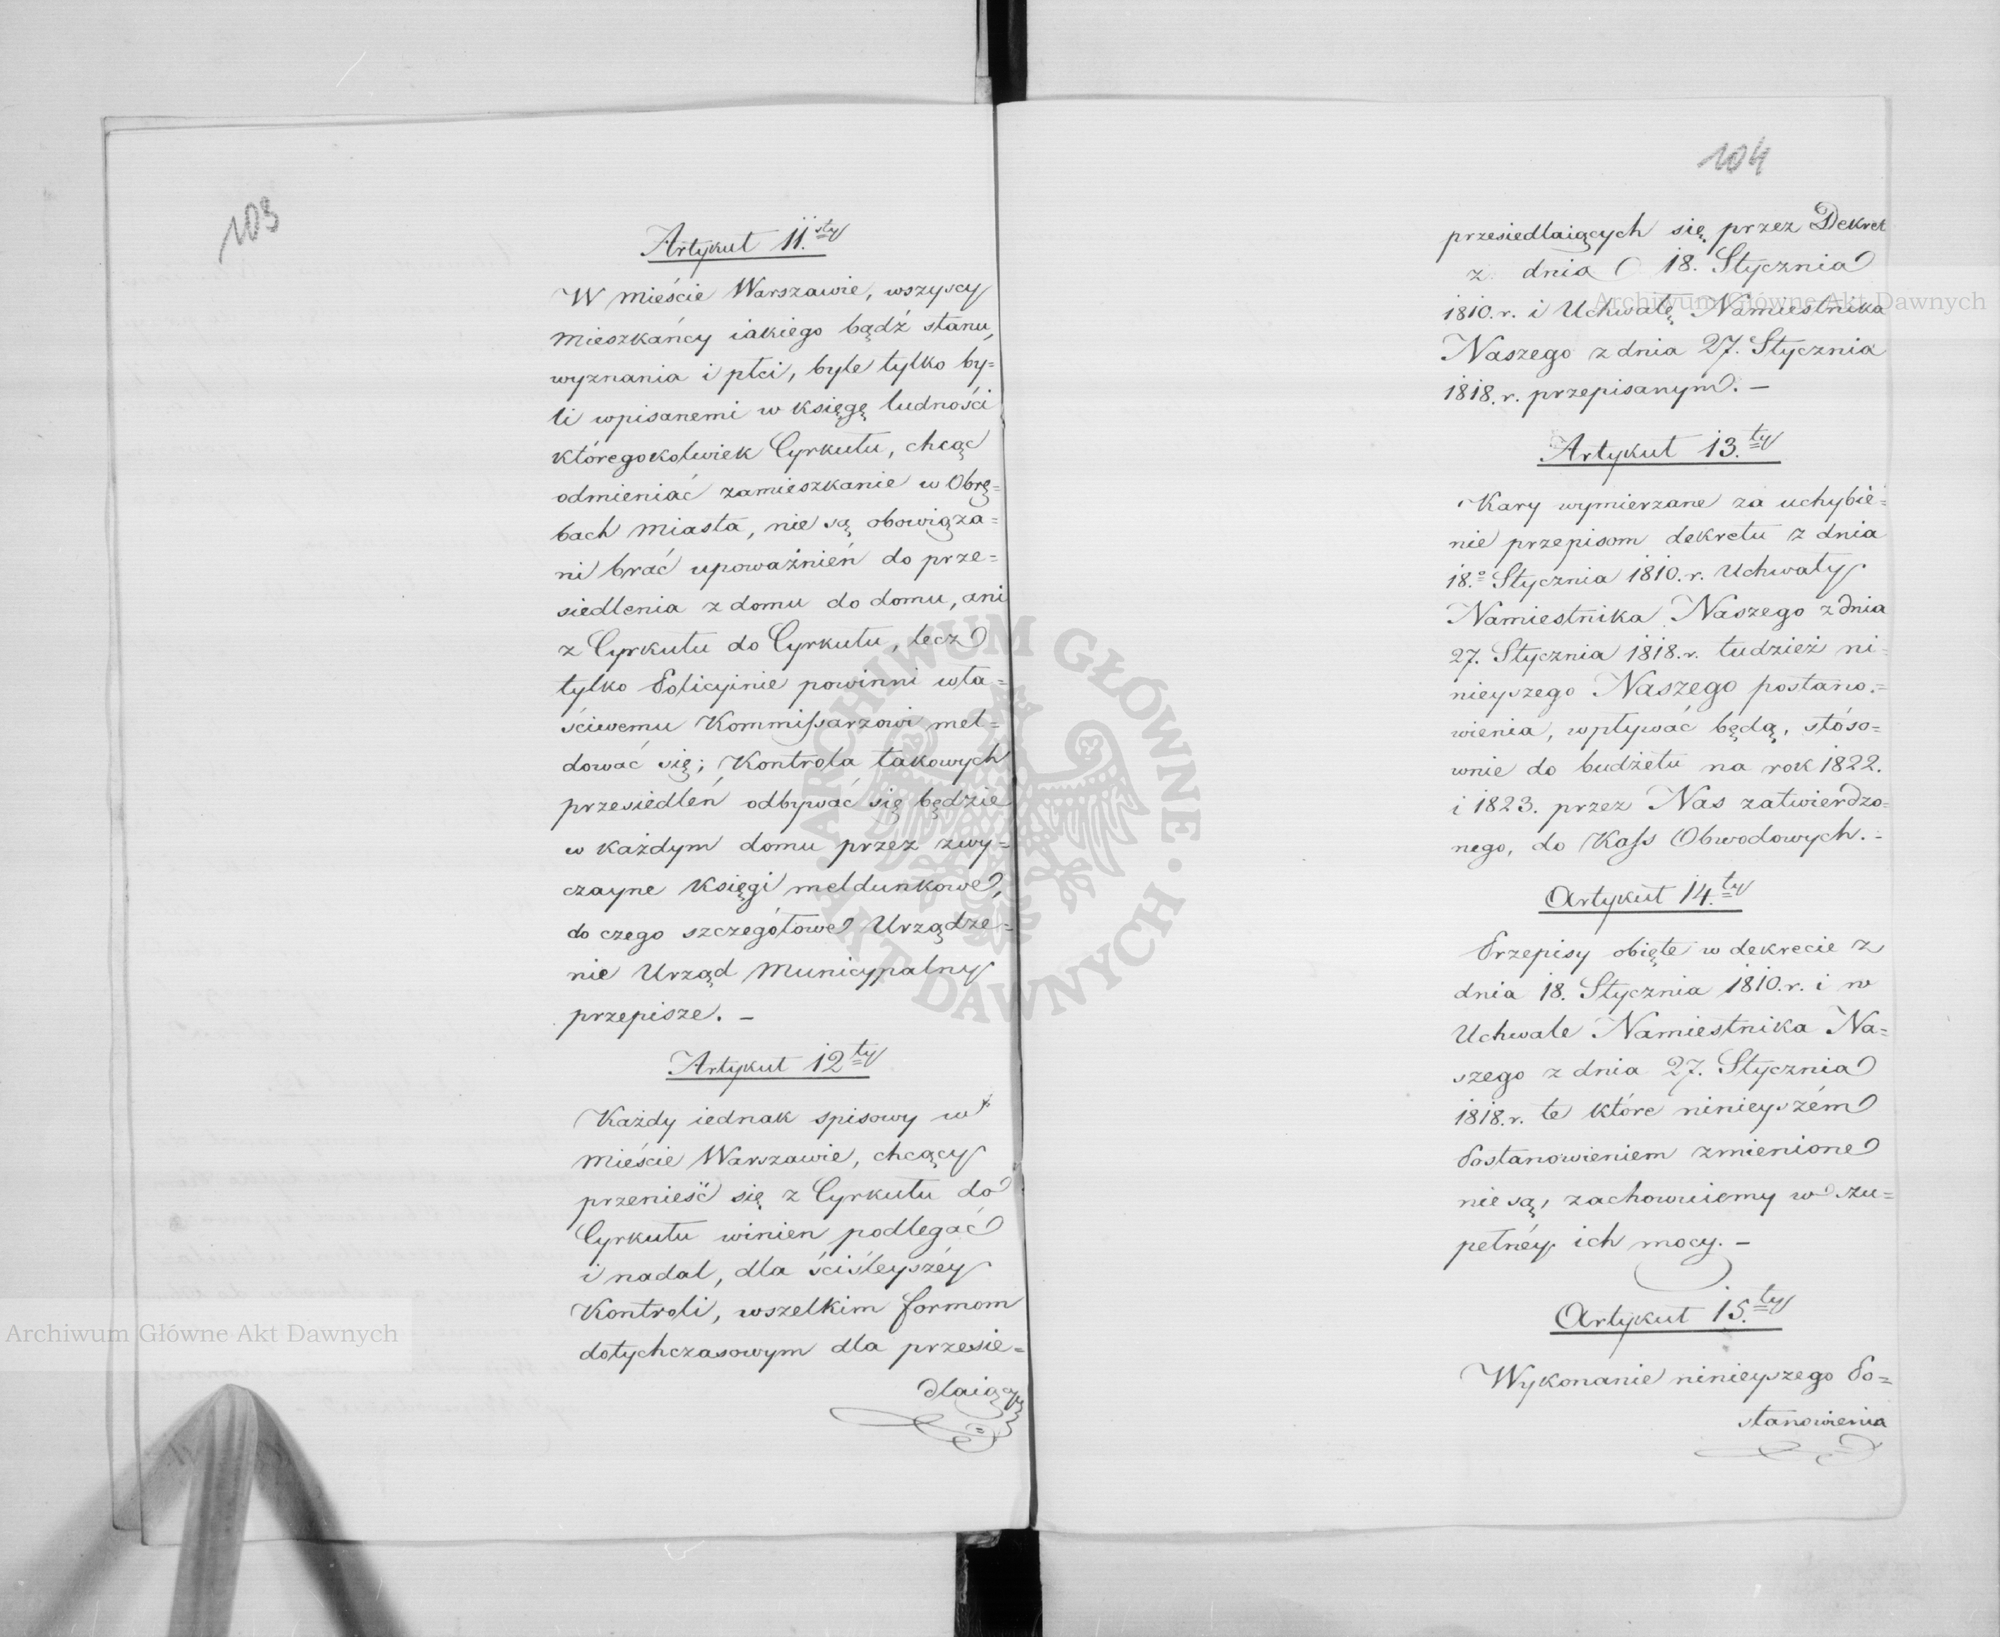 103
Artykuł 11.sty
W mieście Warszawie, wszyscy
mieszkańcy iakiego bądź stanu,
wyznania i płci, byle tylko by=
li wpisanemi w księgę ludności
któregokolwiek Cyrkułu, chcąc
odmieniać zamieszkanie w Obrę=
bach miasta, nie są obowiąza=
ni brać upoważnień do prze=
siedlenia z domu do domu, ani
z Cyrkułu do Cyrkułu, lecz
tylko Policyinie powinni wła=
ściwemu Kommissarzowi mel=
dować się; Kontrola takowych
przesiedleń odbywać się będzie
w każdym domu przez zwy=
czayne księgi meldunkowe,
do czego szczegółowe Urządze=
nie Urząd Municypalny
przepisze. —
Artykuł 12ty
Każdy iednak spisowy w
mieście Warszawie, chcący
przenieść się z Cyrkułu do
Cyrkułu winien podlegać
i nadal, dla ściśleyszéy
Kontroli, wszelkim formom
dotychczasowym dla przesie=
dlaiących
104
przesiedlaiących się przez Dekret
z dnia 18. Stycznia
1810. r. i Uchwałę Namiestnika
Naszego z dnia 27. Stycznia
1818. r. przepisanym. —
Artykuł 13.ty
Kary wymierzane za uchybie=
nie przepisom dekretu z dnia
18.o Stycznia 1810. r. Uchwały
Namiestnika Naszego z dnia
27. Stycznia 1818. r. tudzież ni=
nieyszego Naszego postano=
wienia, wpływać będą, stóso=
wnie do budżetu na rok 1822.
i 1823. przez Nas zatwierdzo=
nego, do Kass Obwodowych. —
Artykuł 14.ty
Przepisy obięte w dekrecie z
dnia 18. Stycznia 1810. r. i w
Uchwale Namiestnika Na=
szego z dnia 27. Stycznia
1818. r. te które ninieyszém
Postanowieniem zmienione
nie są, zachowuiemy w zu=
pełnéy ich mocy. —
Artykuł 15.ty
Wykonanie ninieyszego Po=
stanowienia
Archiwum Główne Akt Dawnych
Archiwum Główne Akt Dawnych
ARCHIWUM GŁÓWNE · AKT DAWNYCH ·